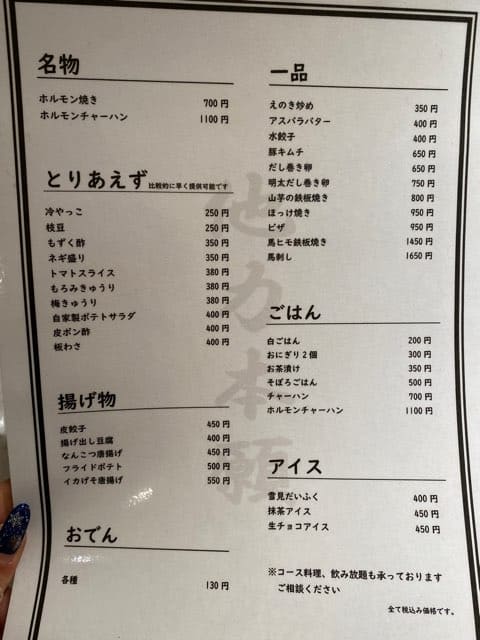 名物
ホルモン焼き 700円
ホルモンチャーハン 1100円
とりあえず 比較的に早く提供可能です
冷やっこ 250円
枝豆 250円
もずく酢 350円
ネギ盛り 350円
トマトスライス 380円
もろみきゅうり 380円
梅きゅうり 380円
自家製ポテトサラダ 400円
皮ポン酢 400円
板わさ 400円
揚げ物
皮餃子 450円
揚げ出し豆腐 400円
なんこつ唐揚げ 450円
フライドポテト 500円
イカげそ唐揚げ 550円
おでん
各種 130円
一品
えのき炒め 350円
アスパラバター 400円
水餃子 400円
豚キムチ 650円
だし巻き卵 650円
明太だし巻き卵 750円
山芋の鉄板焼き 800円
ほっけ焼き 950円
ピザ 950円
馬ヒモ鉄板焼き 1450円
馬刺し 1650円
ごはん
白ごはん 200円
おにぎり2個 300円
お茶漬け 350円
そぼろごはん 500円
チャーハン 700円
ホルモンチャーハン 1100円
アイス
雪見だいふく 400円
抹茶アイス 450円
生チョコアイス 450円
※コース料理、飲み放題も承っております
ご相談ください
全て税込み価格です。
他力本願